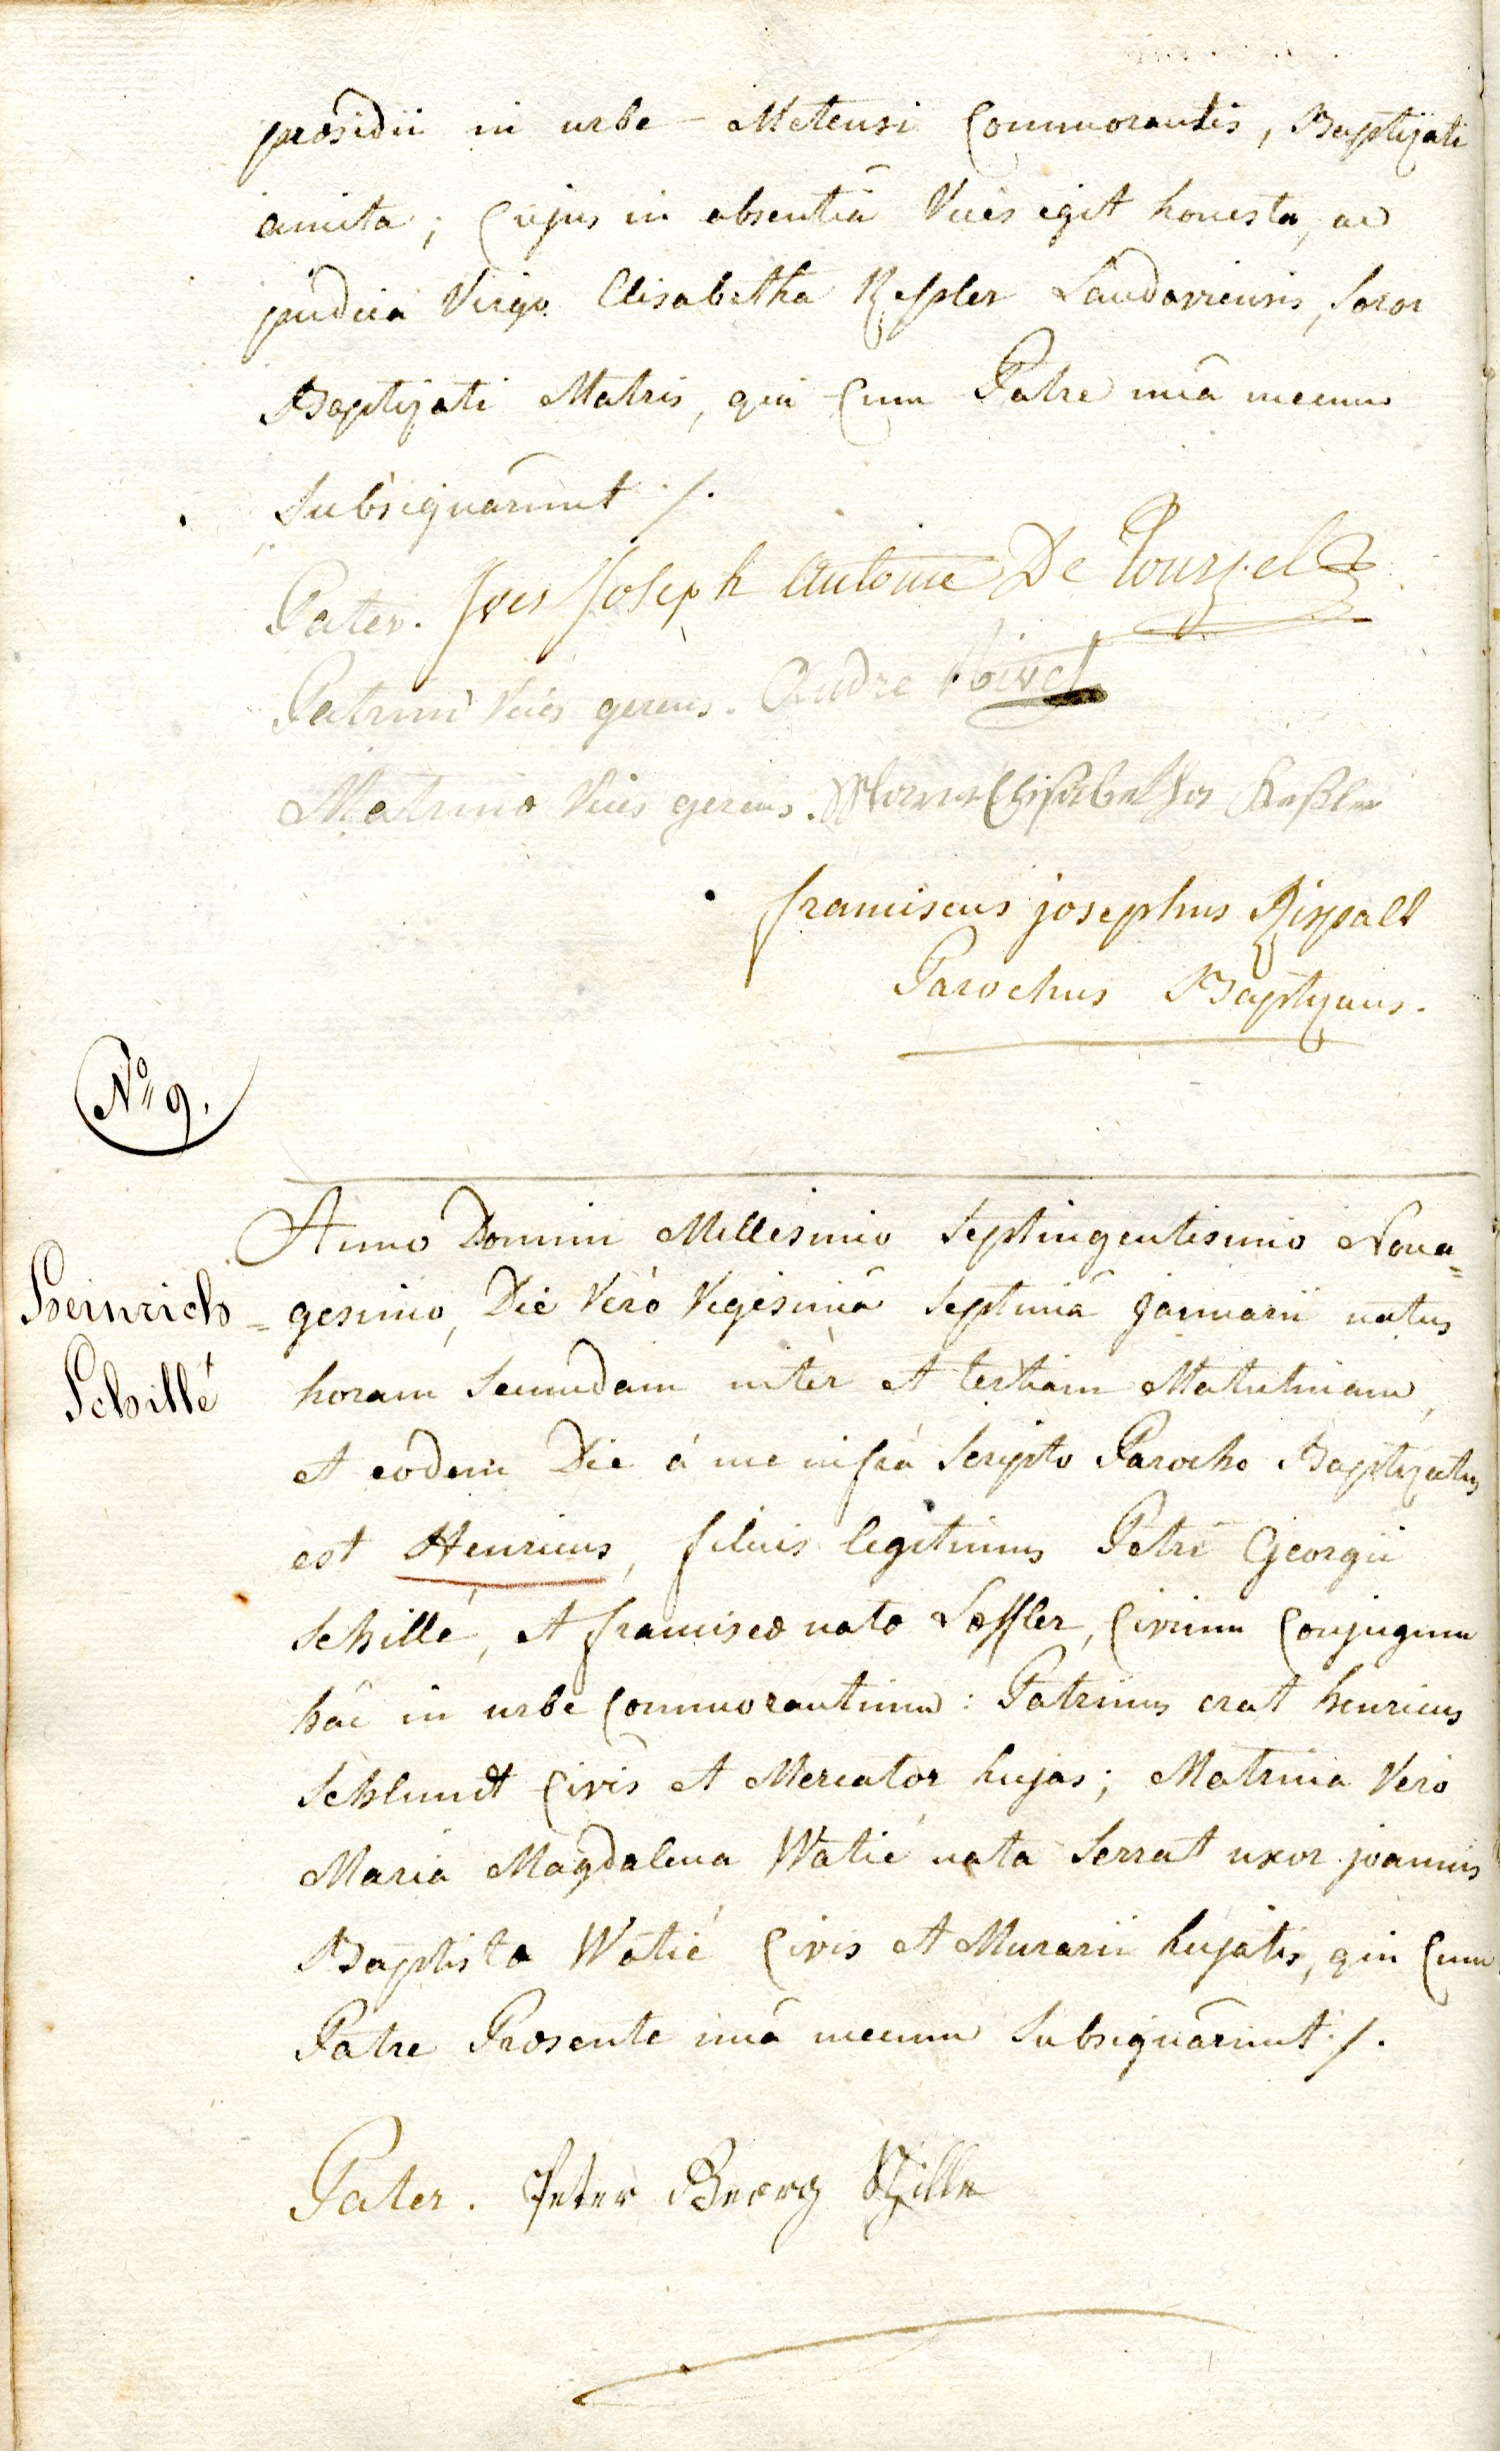 præsidii in urbe Metensi Commorantis, Baptizati
amita; Cujus in absentiâ Vices egit honesta, ac
pudica Virgo Elisabetha Kessler Landaviensis, Soror
Baptizati Matris, qui Cum Patre unâ mecum
Subsignârunt ./.
Pater. Ives Joseph Antoine De Tourzel
Patrini Vices gerens. Andre Noivel
Matrinæ Vices gerens. Maria Elisabetha Keßler
franciscus josephus Rispalt
Parochus Baptizans.
No 9.
Anno Domini Millesimo Septingentisimo Nona=
Heinrich
Schillé
=gesimo, Die Verò Vigesimâ Septimâ Januarii natus
horam Secundam intèr et tertiam Matutinam,
et eodem Die á me infrà Scripto Parocho Baptizatus
est Henricus, filius legitimus Petri Georgii
Schillé, et franciscæ natæ Lœffler, Civium Conjugum
hâc in urbe Commorantium: Patrinus erat henricus
Schlundt Civis et Mercator hujas; Matrina Verò
Maria Magdalena Watié nata Serrat uxor joannis
Baptistæ Watié Civis et Murarii hujatis, qui Cum
Patre Præsente unâ mecum Subsignârunt ./.
Pater. Peter Georg Schille